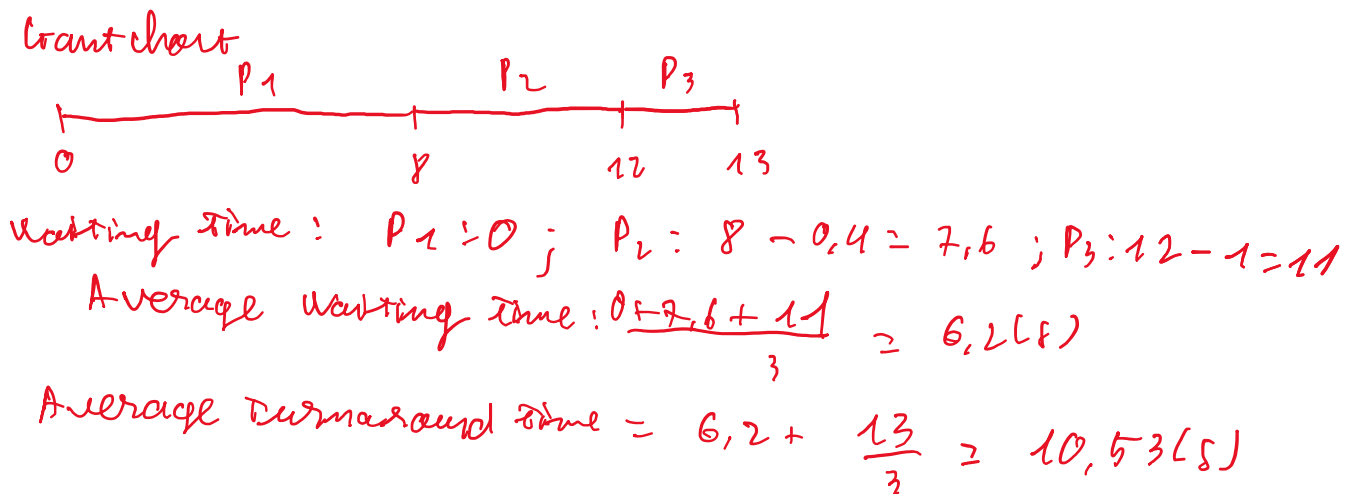 Grant chart
P1 P2 P3
0 8 12 13
Waiting Time : P1 : 0 ; P2 : 8 - 0,4 = 7,6 ; P3 : 12 - 1 = 11
Average Waiting Time : (0+7,6+11)/3 = 6,2(s)
Average Turnaround Time = 6,2 + 13/3 = 10,53(s)